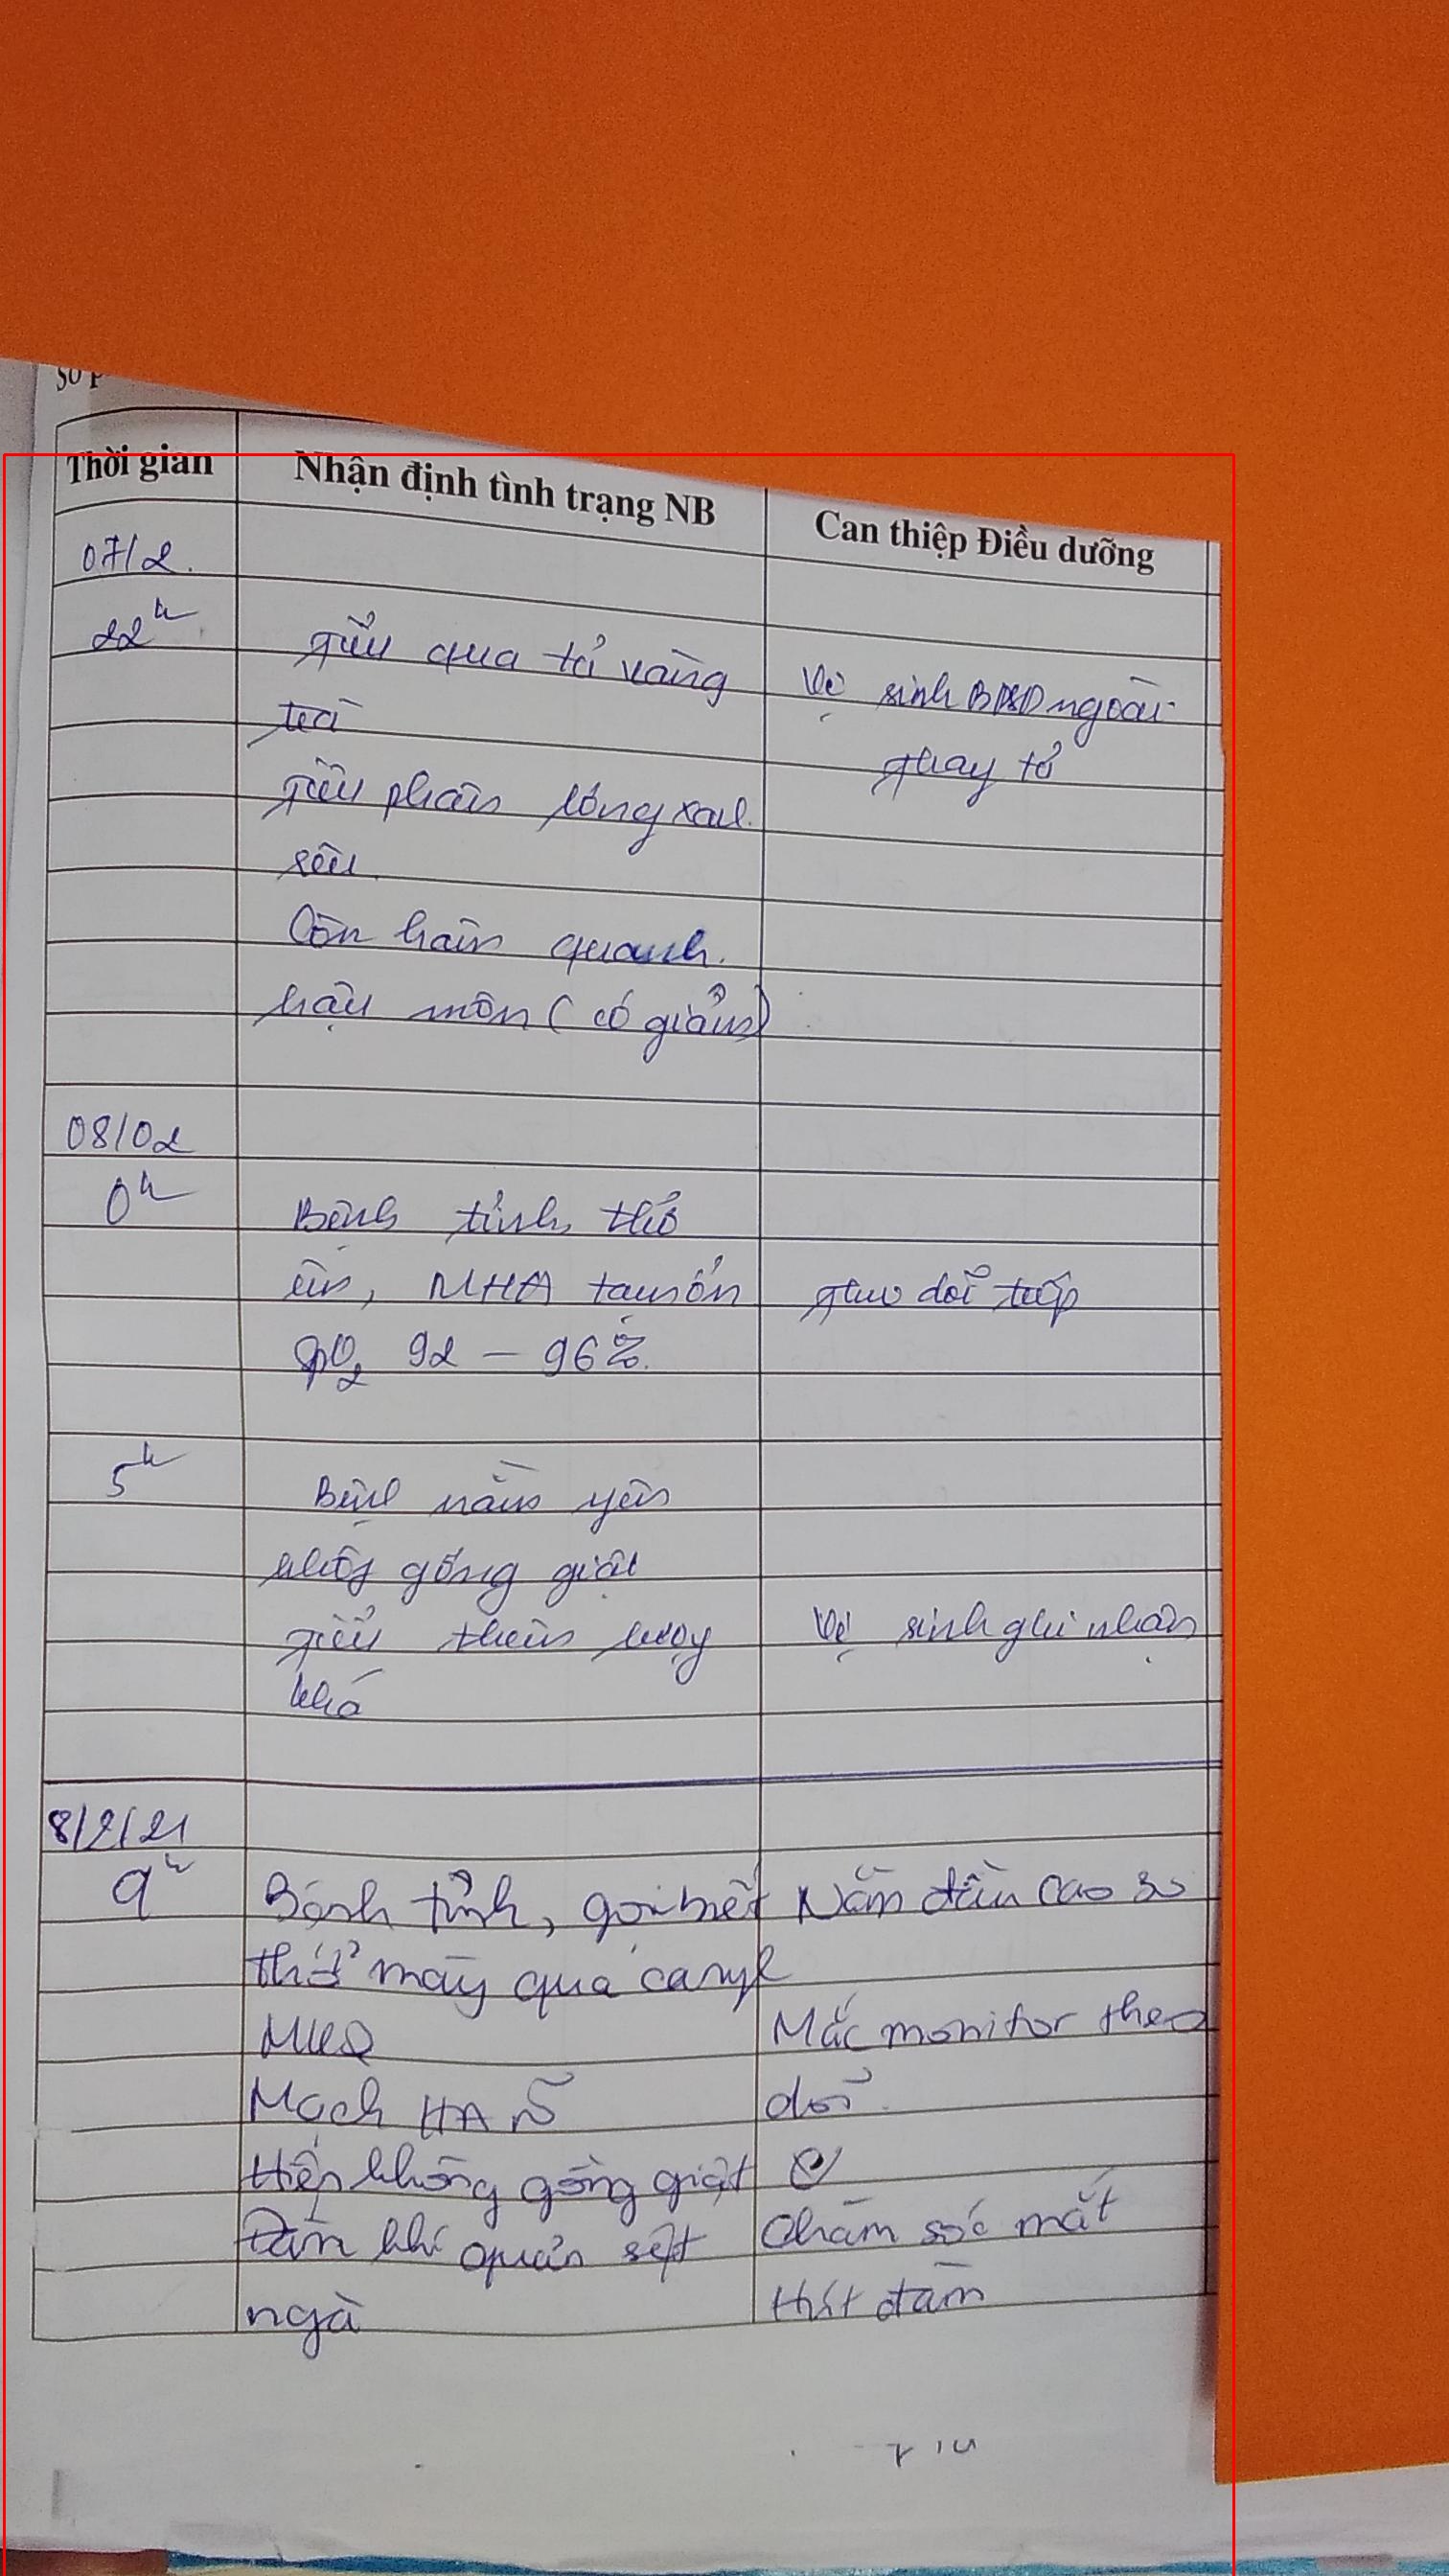 Thời gian Nhận định tình trạng NB Can thiệp Điều dưỡng
07/2
22h
Tiểu qua tả vàng Vệ sinh BPSD ngoài
trà thay tả
Tiêu phân lỏng xanh
rêu
Còn hăm quanh
hậu môn (có giảm)
08/02
0h
Bệnh tỉnh thở
êm, MHA tạm ổn Theo dõi tiếp
SpO2 92 - 96%
5h
Bệnh nằm yên
không gồng giật
Tiểu thêm lượng Vệ sinh ghi nhận
khá
8/2/21
9h
Bệnh tỉnh, gọi biết Nằm đầu cao 30
thở máy qua
MKQ Mắc monitor theo
Mạch HA dõi
Hiện không gồng giật
Đàm khí quản sệt Chăm sóc mắt
ngà Hút đàm